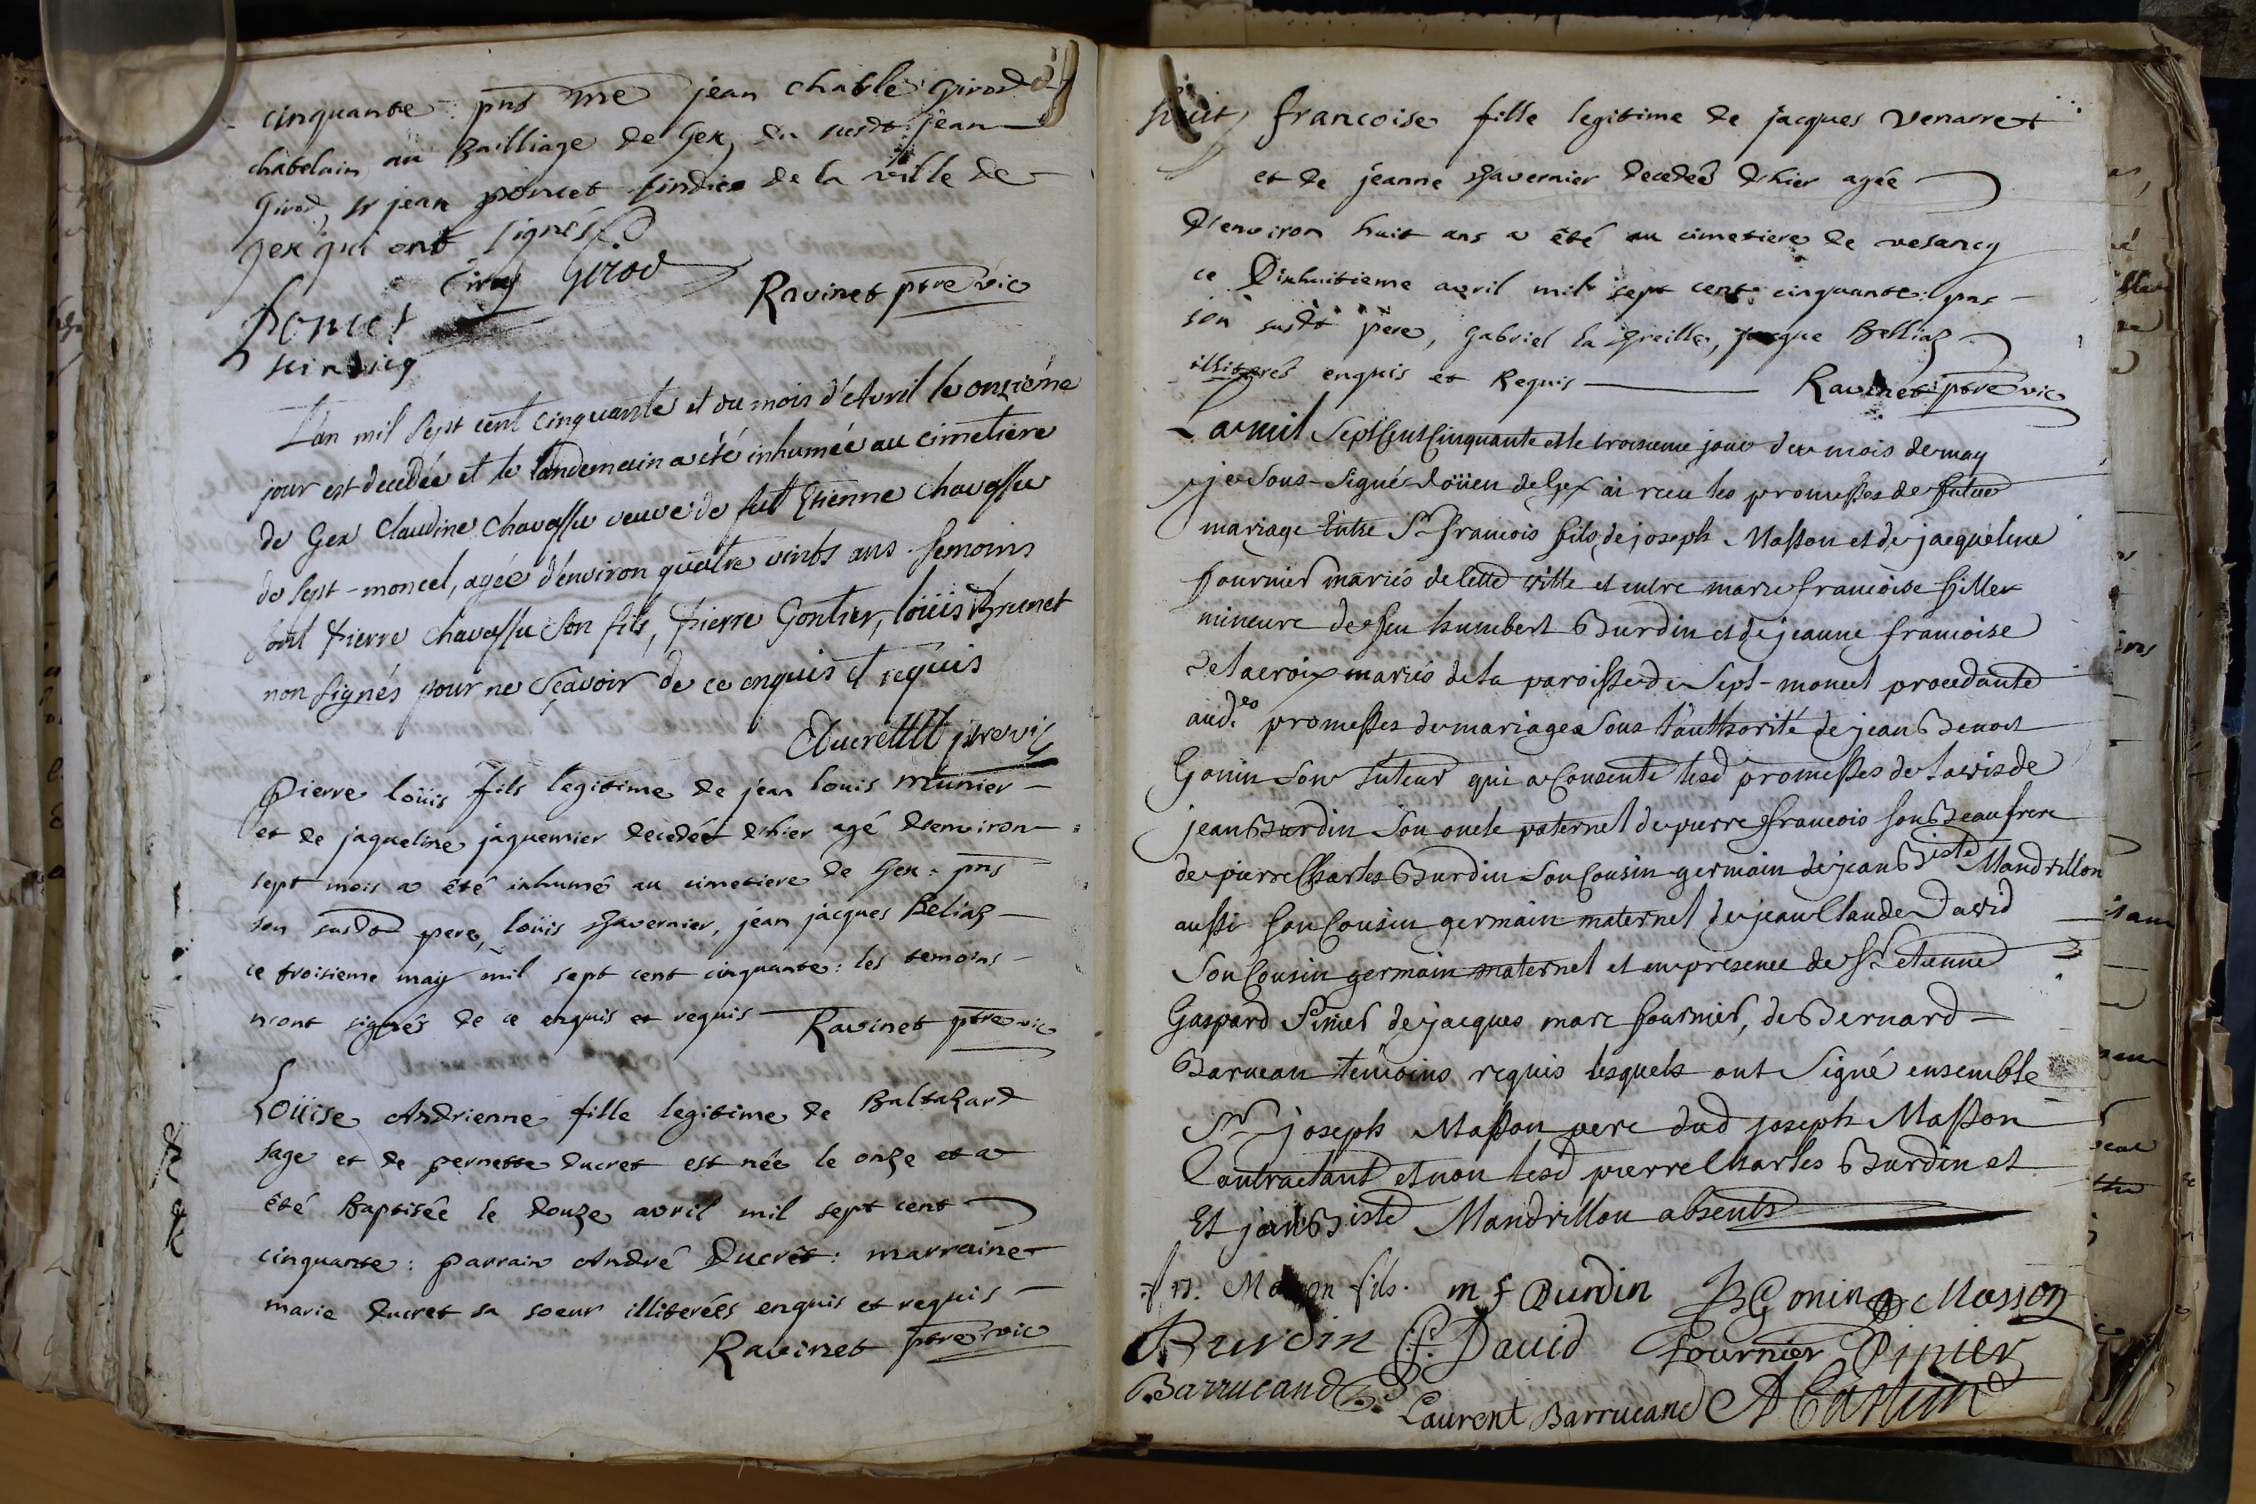 cinquante : pns me jean chable Girod
chatelain au Bailliage de Gex, du susdt jean
Girod, sr jean poncet sindic de la ville de
Gex qui ont signés
Girod
Ravinet ptre vic
Poncet
sindicq
L'an mil sept cent cinquante et du mois d'Avril le onziéme
jour est decedée et le landemain a été inhumée au cimetiere
de Gex Claudine Chavassu veuve de fut Etienne Chavassu
de Sept-moncel, agée d'environ quatre vints ans. temoins
sont Pierre Chavassu son fils, Pierre Gontier, loüis Brunet
non signés pour ne sçavoir de ce enquis et requis
Ducrettt ptre vic
Pierre loüis fils legitime de jean louis munier
et de jaqueline jaquemier decedéé d'hier agé d'environ
sept mois a été inhumé au cimetiere de Gex : pns
son susdt pere, loüis Chavernier, jean jacques Beliaz
ce troisieme may mil sept cent cinquante : les temoins
n'ont signés de ce enquis et requis Ravinet ptre vic
Loüise Andrienne fille legitime de Baltazard
sage et de pernette ducret est née le onze et a
été Baptisée le douze avril mil sept cent
cinquante : parrain André Ducret : marraine
marie ducret sa soeur illiterées enquis et requis
Ravinet ptre vic
francoise fille legitime de jacques Venarret
et de jeanne Chavernier decedée d'hier agée
d'environ huit ans a été au cimetiere de vesancy
ce Dixhuitieme avril mil sept cent cinquante : pns
son susdt pere, Gabriel la Greille, jacque Belliaz
illiterés enquis et Requis Ravinet ptre vic
L'a mil Sept Cent Cinquante et le troisieme jour du mois de may
je Sous-Signé doüen de Gex ai receu les promesses de futur
mariage Entre Sr francois fils de joseph Masson et de jacqueline
fournier mariés de cette ville et entre marie francoise fille
mineure de feu humbert Burdin et de jeanne francoise
Delacroix mariés de la paroisse de Sept-moncel procedante
aud.es promesses de mariage Sous l'authorité de jean Benoit
Gonin Son tuteur qui a Consenti lesd promesses de l'avis de
jean Burdin Son oncle paternel de pierre francois Son Beaufrere
de pierre Charles Burdin Son Cousin germain de jean Bste Mandrillon
aussi Son Cousin germain maternel de jean Claude David
Son Cousin germain maternel et en presence de Sr etienne
Gaspard Pinier de jacques marc fournier, de Bernard
Barucan temoins requis lesquels ont Signé ensemble
Sr joseph Masson pere dud joseph Masson
Contractant et non lesd pierre Charles Burdin et
Et jean Biste Mandrillon absents
fr. Masson fils. m f Burdin JB Gonin Masson
Burdin C. David fournier Pinier
Barrucand Laurent Barrucand